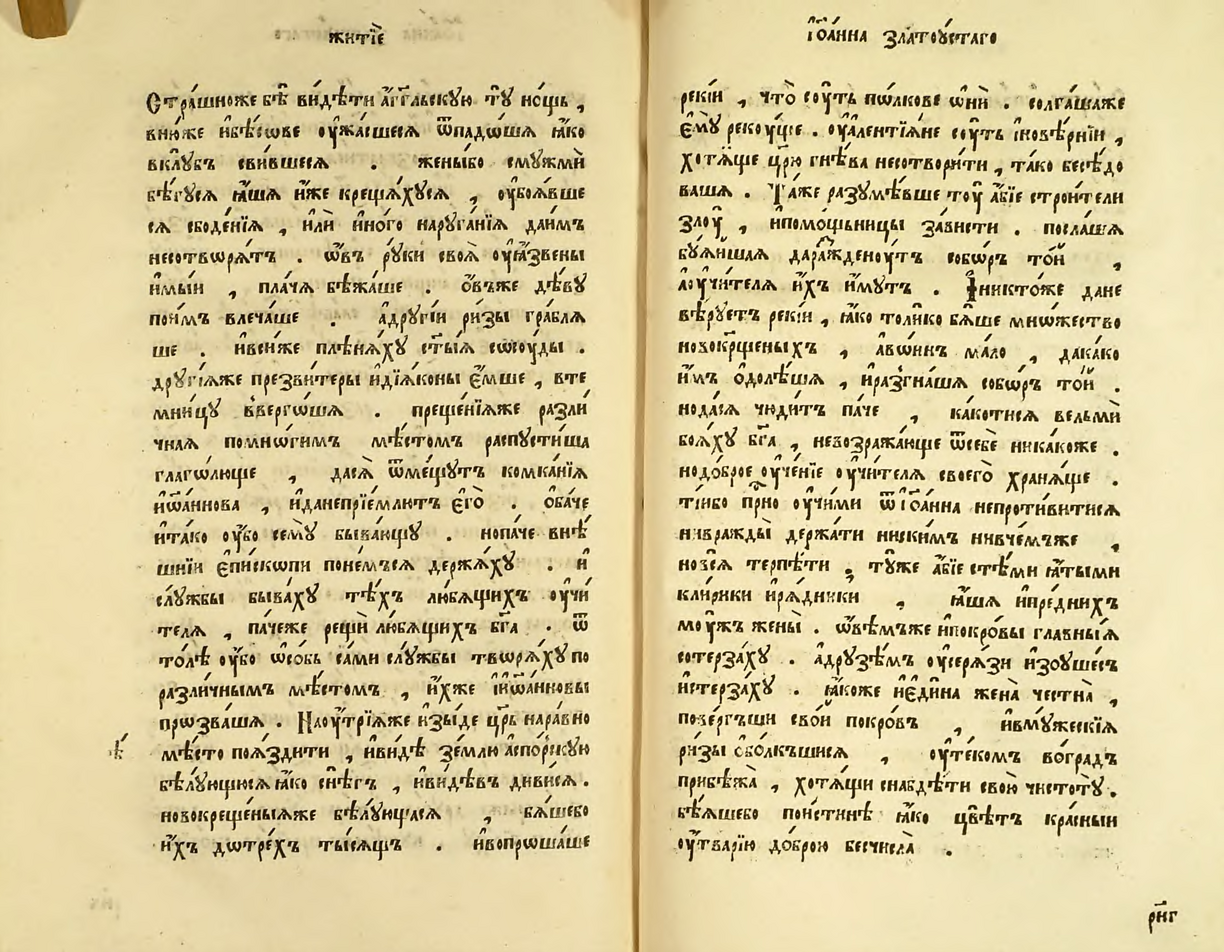 житїе
Стра́шноже бѣ̀ ви́дѣти а҆́гг҃льскую ту̀ но́щь ,
вню́же ибѣ́сѡве оу҆жа́сшеся ѿпадо́шѧ ꙗ҆́ко
вклу́бъ сви́вшеся . жены́бо смужмѝ
бѣ́гуся ꙗ҆́шѧ и҆́же крещѧ́хуся , оу҆боя́вше
сѧ сбоде́нїѧ , и҆лѝ и҆но́го наруга́нїѧ да́и҆мъ
несотворѧ́тъ . ѡ҆́въ ру́ки своѧ̀ оу҆ꙗ҆́звены
и҆мы́и , пла́чѧ бѣжа́ше . о҆́въже дѣ́ву
пои́мъ влеча́ше . а҆друґі́и ри́зы гра́блѧ
ше . и҆вси́же плѣнѧ́ху ст҃ы́ѧ сосоу́ды .
другі́ѧже презви́теры и҆дїѧ́коны е҆́мше , вте
мни́цу вве́ргѡшѧ . преще́нїѧже разли́
чнаѧ помно́гимъ мѣ́стомъ распусти́ша
глаго́люще , дасѧ̀ ѿме́щутъ комка́нїѧ
и҆ѡа́ннова , и҆данепрїе́млютъ е҆гѡ̀ . ѻ҆ба́че
и҆та́ко оу҆́бо сему̀ быва́ющу . нопа́че внѣ́
шнїи е҆пи́скопи поне́мъсѧ держѧ́ху . и҆
слу́жбы быва́ху тѣ́хъ лю́бѧщихъ оу҆чи́
телѧ , па́чеже рещѝ лю́бѧщихъ бг҃а . ѿ
то́лѣ оу҆́бо ѡ҆со́бь са́ми слу́жбы творѧ́ху по
разли́чнымъ мѣ́стомъ , и҆́хже і҆ѡа́нновы
прозва́шѧ . Наоу́трїѧже и҆зы́де цр҃ь нара́вно
мѣ́сто поѧ́здити , и҆ви́дѣ зе́млю а҆спори́кую
бѣлу́ющюсѧ ꙗ҆́ко снѣ́гъ , и҆ви́дѣвъ диви́сѧ .
новокреще́ныѧже бѣлу́ющасѧ , бѧ́шебо
и҆́хъ дотре́хъ ты́сѧщъ . и҆вопроша́ше
і҆ѡа́нна златоу́стаго
реки́и , что̀ соу́ть по́лкове ѡ҆нѝ . солга́шаже
е҆му̀ реку́ще . оу҆але́нтїѧне соу́ть і҆новѣ́рнїи ,
хотѧ́ще цр҃ю гнѣ́ва несотвори́ти , та́ко бесѣ́до
вашѧ . Та́же разумѣ́вше тоу̀ а҆́бїе строи́тели
злоу̀ , и҆помо́щьницы за́висти . посла́шѧ
бу́йшаѧ дараждену́тъ собо́ръ то́й ,
а҆оу҆чи́телѧ и҆́хъ и҆́мутъ . І҆никто́же дане
вѣ́руетъ реки́и , ꙗ҆́ко толи́ко бѧ́ше мно́жество
новокрщ҃еныхъ , а҆во́инъ ма́ло , дака́ко
и҆́мъ ѻ҆долѣ́шѧ , и҆разгна́шѧ собо́ръ то́й .
нода́сѧ чюди́тъ па́че , ка́котисѧ вельмѝ
боѧ́ху бг҃а , невозража́юще ѿсебѐ ника́коже .
нодо́брое оу҆че́нїе оу҆чи́телѧ своегѡ̀ хранѧ́ще .
ті́ибо прⷭ҇но оу҆чи́ми ѿі҆ѡа́нна непроти́витисѧ
нивражды̀ держа́ти нискимъ нивче́мъже ,
новсѧ̀ терпѣ́ти . ту́же а҆́бїе стѣ́ми ꙗ҆́тыми
кли́рики и҆рѧ́дники , ꙗ҆́шѧ и҆пре́днихъ
моу́жъ жены̀ . ѡ҆вѣ́мъже и҆покро́вы гла́вныѧ
сотерза́ху . а҆друзѣ́мъ оу҆серѧ́зи и҆зоуше́съ
и҆стерза́ху . ꙗ҆́коже и҆е҆ди́на жена̀ честна̀ ,
пове́ргъши сво́й покро́въ , и҆вму́жескїѧ
ри́зы ѡболкъшисѧ , оу҆те́комъ вогра́дъ
прибѣжа̀ , хотѧ́щи снабдѣ́ти свою̀ чистоту̀ .
бѣѧ́шебо пои́стинѣ ꙗ҆́ко цвѣ́тъ кра́сныи
оу҆тва́рїю до́брою бесчисла̀ .
рн҃г